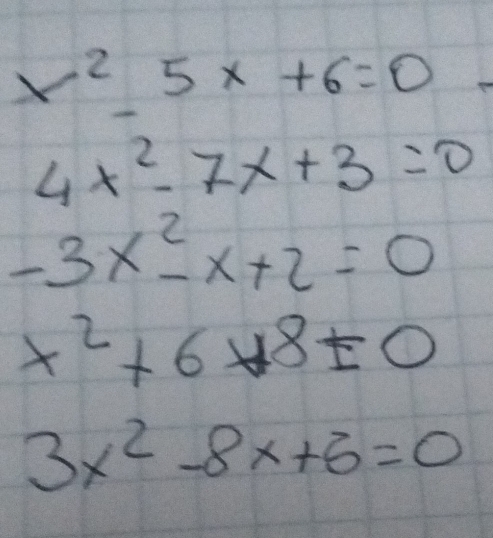 x² - 5x + 6 = 0 -
4x² - 7x + 3 = 0
-3x² - x + 2 = 0
x² + 6 8 = 0
3x² - 8x + 6 = 0